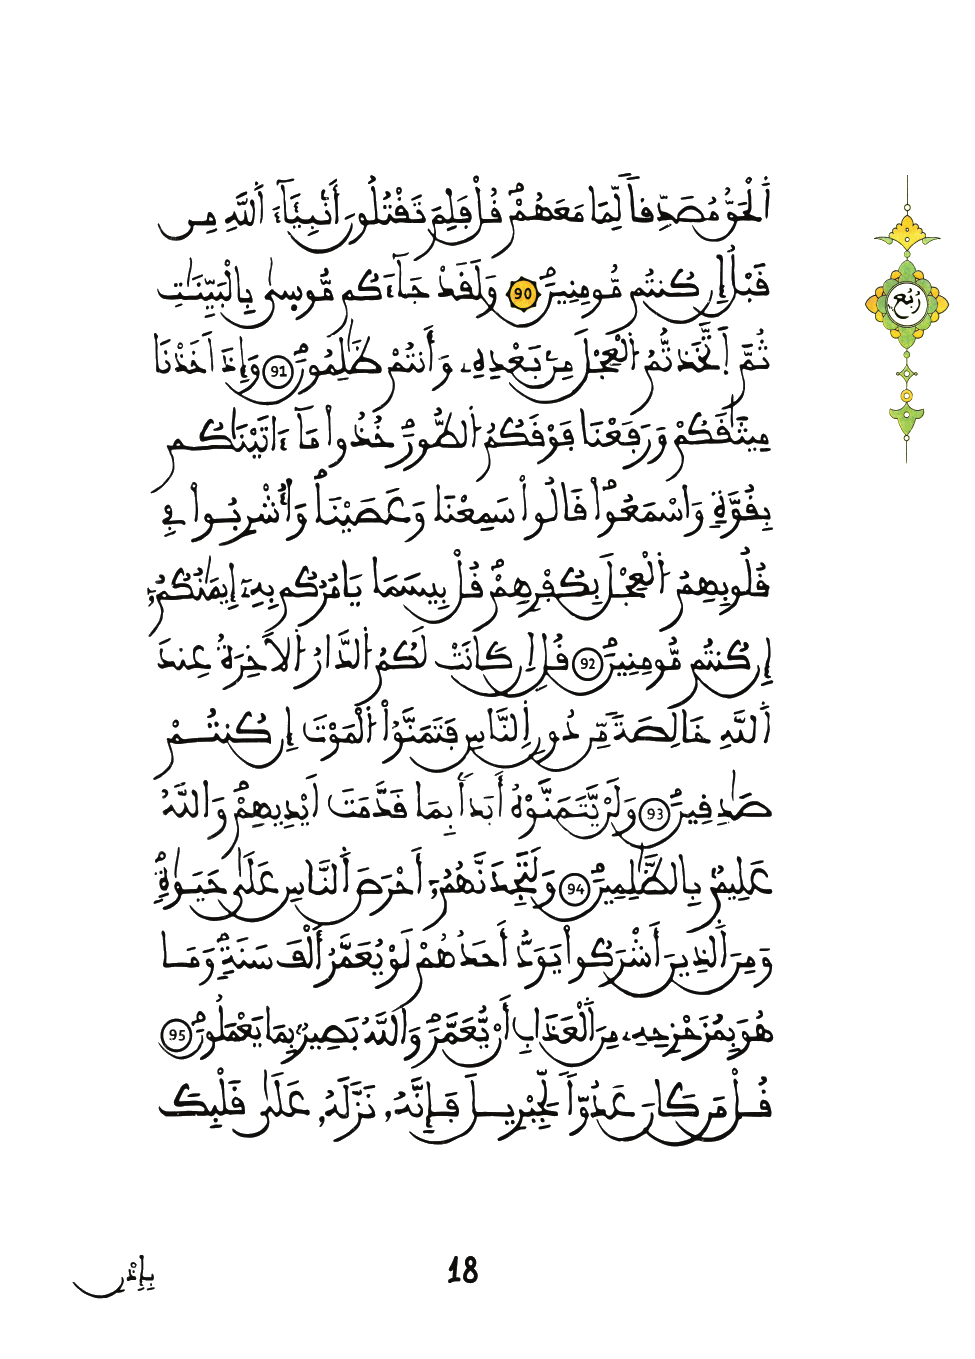 اَ۬لْحَقُّ مُصَدِّقاٗ لِّمَا مَعَهُمْۖ قُلْ فَلِمَ تَقْتُلُونَ أَنۢبِيَآءَ اَ۬للَّهِ مِن
قَبْلُ إِن كُنتُم مُّومِنِينَۖ 90 وَلَقَدْ جَآءَكُم مُّوسىٰ بِالْبَيِّنَٰتِ
ثُمَّ اَ۪تَّخَذتُّمُ اُ۬لْعِجْلَ مِنۢ بَعْدِهِۦ وَأَنتُمْ ظَٰلِمُونَۖ 91 وَإِذَ اَخَذْنَا
مِيثَٰقَكُمْ وَرَفَعْنَا فَوْقَكُمُ اُ۬لطُّورَۖ خُذُواْ مَآ ءَاتَيْنَٰكُم
بِقُوَّةٖ وَاسْمَعُواْۖ قَالُواْ سَمِعْنَا وَعَصَيْنَاۖ وَأُشْرِبُواْ فِے
قُلُوبِهِمُ اُ۬لْعِجْلَ بِكُفْرِهِمْۖ قُلْ بِيسَمَا يَامُرُكُم بِهِۦٓ إِيمَٰنُكُمُۥٓ
إِن كُنتُم مُّومِنِينَۖ 92 قُلِ اِن كَانَتْ لَكُمُ اُ۬لدَّارُ اُ۬لَاخِرَةُ عِندَ
اَ۬للَّهِ خَالِصَةٗ مِّن دُونِ اِ۬لنَّاسِ فَتَمَنَّوُاْ اُ۬لْمَوْتَ إِن كُنتُمْ
صَٰدِقِينَۖ 93 وَلَنْ يَّتَمَنَّوْهُ أَبَداَۢ بِمَا قَدَّمَتَ اَيْدِيهِمْۖ وَاللَّهُ
عَلِيمُۢ بِالظَّٰلِمِينَۖ 94 وَلَتَجِدَنَّهُمُۥٓ أَحْرَصَ اَ۬لنَّاسِ عَلَىٰ حَيَوٰةٖۖ
وَمِنَ اَ۬لذِينَ أَشْرَكُواْ يَوَدُّ أَحَدُهُمْ لَوْ يُعَمَّرُ أَلْفَ سَنَةٖۖ وَمَا
هُوَ بِمُزَحْزِحِهِۦ مِنَ اَ۬لْعَذَابِ أَنْ يُّعَمَّرَۖ وَاللَّهُ بَصِيرُۢ بِمَا يَعْمَلُونَۖ 95
قُلْ مَن كَانَ عَدُوّاٗ لِّجِبْرِيلَ فَإِنَّهُۥ نَزَّلَهُۥ عَلَىٰ قَلْبِكَ
رُبُع
بِإِذْنِ
18